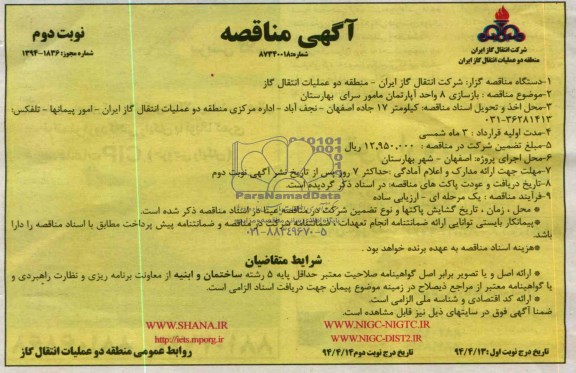 آگهی مناقصه
شماره: ۸۷۳۴۰۰۱۸
نوبت دوم
شماره مجوز: ۱۸۳۶-۱۳۹۴
شرکت انتقال گاز ایران
منطقه دو عملیات انتقال گاز ایران
۱-دستگاه مناقصه گزار: شرکت انتقال گاز ایران - منطقه دو عملیات انتقال گاز
۲-موضوع مناقصه : بازسازی ۸ واحد آپارتمان مامور سرای بهارستان
۳-محل اخذ و تحویل اسناد مناقصه: کیلومتر ۱۷ جاده اصفهان - نجف آباد - اداره مرکزی منطقه دو عملیات انتقال گاز ایران - امور پیمانها - تلفکس:
۰۳۱-۳۶۲۸۱۴۱۳
۴-مدت اولیه قرارداد : ۳ ماه شمسی
۵-مبلغ تضمین شرکت در مناقصه : ۱۲,۹۵۰,۰۰۰ ریال
۶-محل اجرای پروژه: اصفهان - شهر بهارستان
۷-مهلت جهت ارائه مدارک و اعلام آمادگی :حداکثر ۷ روز پس از تاریخ نشر آگهی نوبت دوم
۸-تاریخ دریافت و عودت پاکت های مناقصه: در اسناد ذکر گردیده است.
۹-فرآیند مناقصه : یک مرحله ای - ارزیابی ساده
* محل ، زمان ، تاریخ گشایش پاکتها و نوع تضمین شرکت در مناقصه عینا در اسناد مناقصه ذکر شده است.
*پیمانکار بایستی توانایی ارائه ضمانتنامه انجام تعهدات، ضمانتنامه شرکت در مناقصه و ضمانتنامه پیش پرداخت مطابق با اسناد مناقصه را دارا
باشد.
*هزینه اسناد مناقصه به عهده برنده خواهد بود .
ParsNamadData
۰۲۱-۸۸۳۴۹۶۷۰-۵
شرایط متقاضیان
* ارائه اصل و یا تصویر برابر اصل گواهینامه صلاحیت معتبر حداقل پایه ۵ رشته ساختمان و ابنیه از معاونت برنامه ریزی و نظارت راهبردی و
یا گواهینامه معتبر از مراجع ذیصلاح در زمینه موضوع پیمان جهت دریافت اسناد الزامی است.
* ارائه کد اقتصادی و شناسه ملی الزامی است.
ضمنا آگهی فوق در سایتهای ذیل نیز قابل مشاهده است.
WWW.SHANA.IR
WWW.NIGC-NIGTC.IR
http://iets.mporg.ir
WWW.NIGC-DIST2.IR
تاریخ درج نوبت اول: ۹۴/۴/۱۳
تاریخ درج نوبت دوم ۹۴/۴/۱۴
روابط عمومی منطقه دو عملیات انتقال گاز